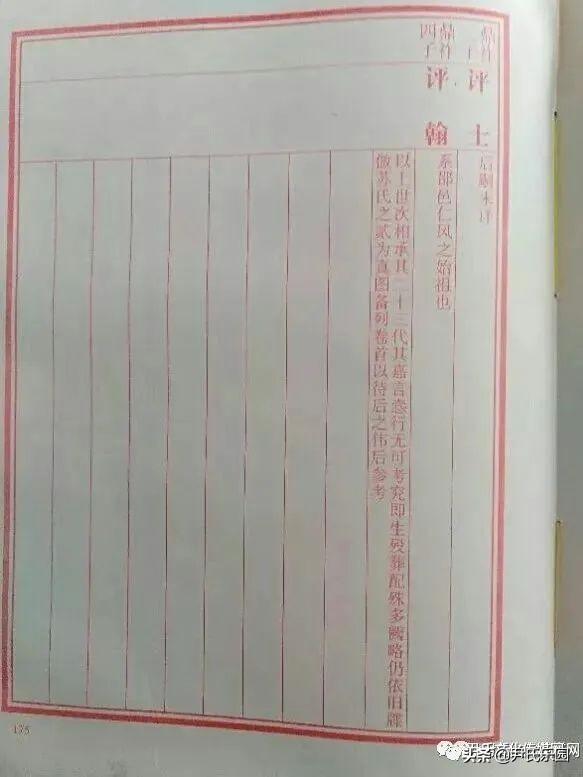 鼎祥
子
评士
后嗣未详
鼎祥
四子
评翰
系邵邑仁风之始祖也
以上世次相承其二十三代其嘉言懿行无可考究即生殁葬配殊多阙略仍依旧牒
倣苏氏之式为直图备列卷首以待后之伟后参考
175
头条@尹氏乐园